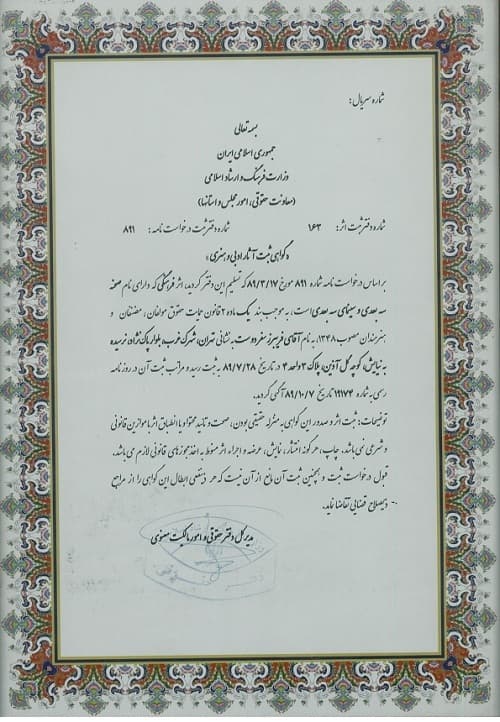 شماره سریال:
بسمه تعالی
جمهوری اسلامی ایران
وزارت فرهنگ و ارشاد اسلامی
(معاونت حقوقی، امور مجلس و استانها)
شماره دفتر ثبت اثر: ۱۶۳ شماره دفتر ثبت درخواست نامه: ۸۹۱
«گواهی ثبت آثار ادبی و هنری»
بر اساس درخواست نامه شماره ۸۹۱ مورخ ۸۹/۳/۱۷ که تسلیم این دفتر گردید، اثر فرهنگی که دارای نام صحنه
سه بعدی و سینمای سه بعدی است، به موجب بند یک ماده ۲ قانون حمایت حقوق مولفان، مصنفان و
هنرمندان مصوب ۱۳۴۸، به نام آقای فریبرز سفر دوست به نشانی تهران، شهرک غرب، بلوار پاک نژاد، نرسیده
به نیایش، کوچه گل آذین، پلاک ۳ واحد ۴ در تاریخ ۸۹/۷/۲۸ به ثبت رسیده و مراتب ثبت آن در روزنامه
رسمی به شماره ۱۹۱۷۴ تاریخ ۸۹/۱۰/۷ آگهی گردید.
توضیحات: ثبت اثر و صدور این گواهی، به منزله حقیقی بودن، صحت و تائید محتوا و یا انطباق اثر با موازین قانونی
و شرعی نمی باشد. چاپ، هر گونه انتشار، نمایش، عرضه و اجراء اثر منوط به اخذ مجوزهای قانونی لازم می باشد.
قبول درخواست ثبت و همچنین ثبت آن مانع از آن نیست که هر ذینفعی ابطال این گواهی را از مراجع
ذیصلاح قضایی تقاضا نماید.
مدیر کل دفتر حقوقی و امور مالکیت معنوی